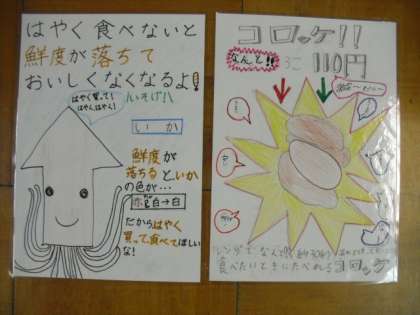 はやく食べないと
鮮度が落ちて
おいしくなくなるよ!
はやく買って!
はやく、はやく!
いそげ!!
いか
鮮度が
落ちるといか
の色が…
白→白
だからはやく
買って食べてほしい
な!
コロッケ!!
なんと!!
3こ 110円
レンジで なんと 約30秒
食べたいときにたべれる コロッケ